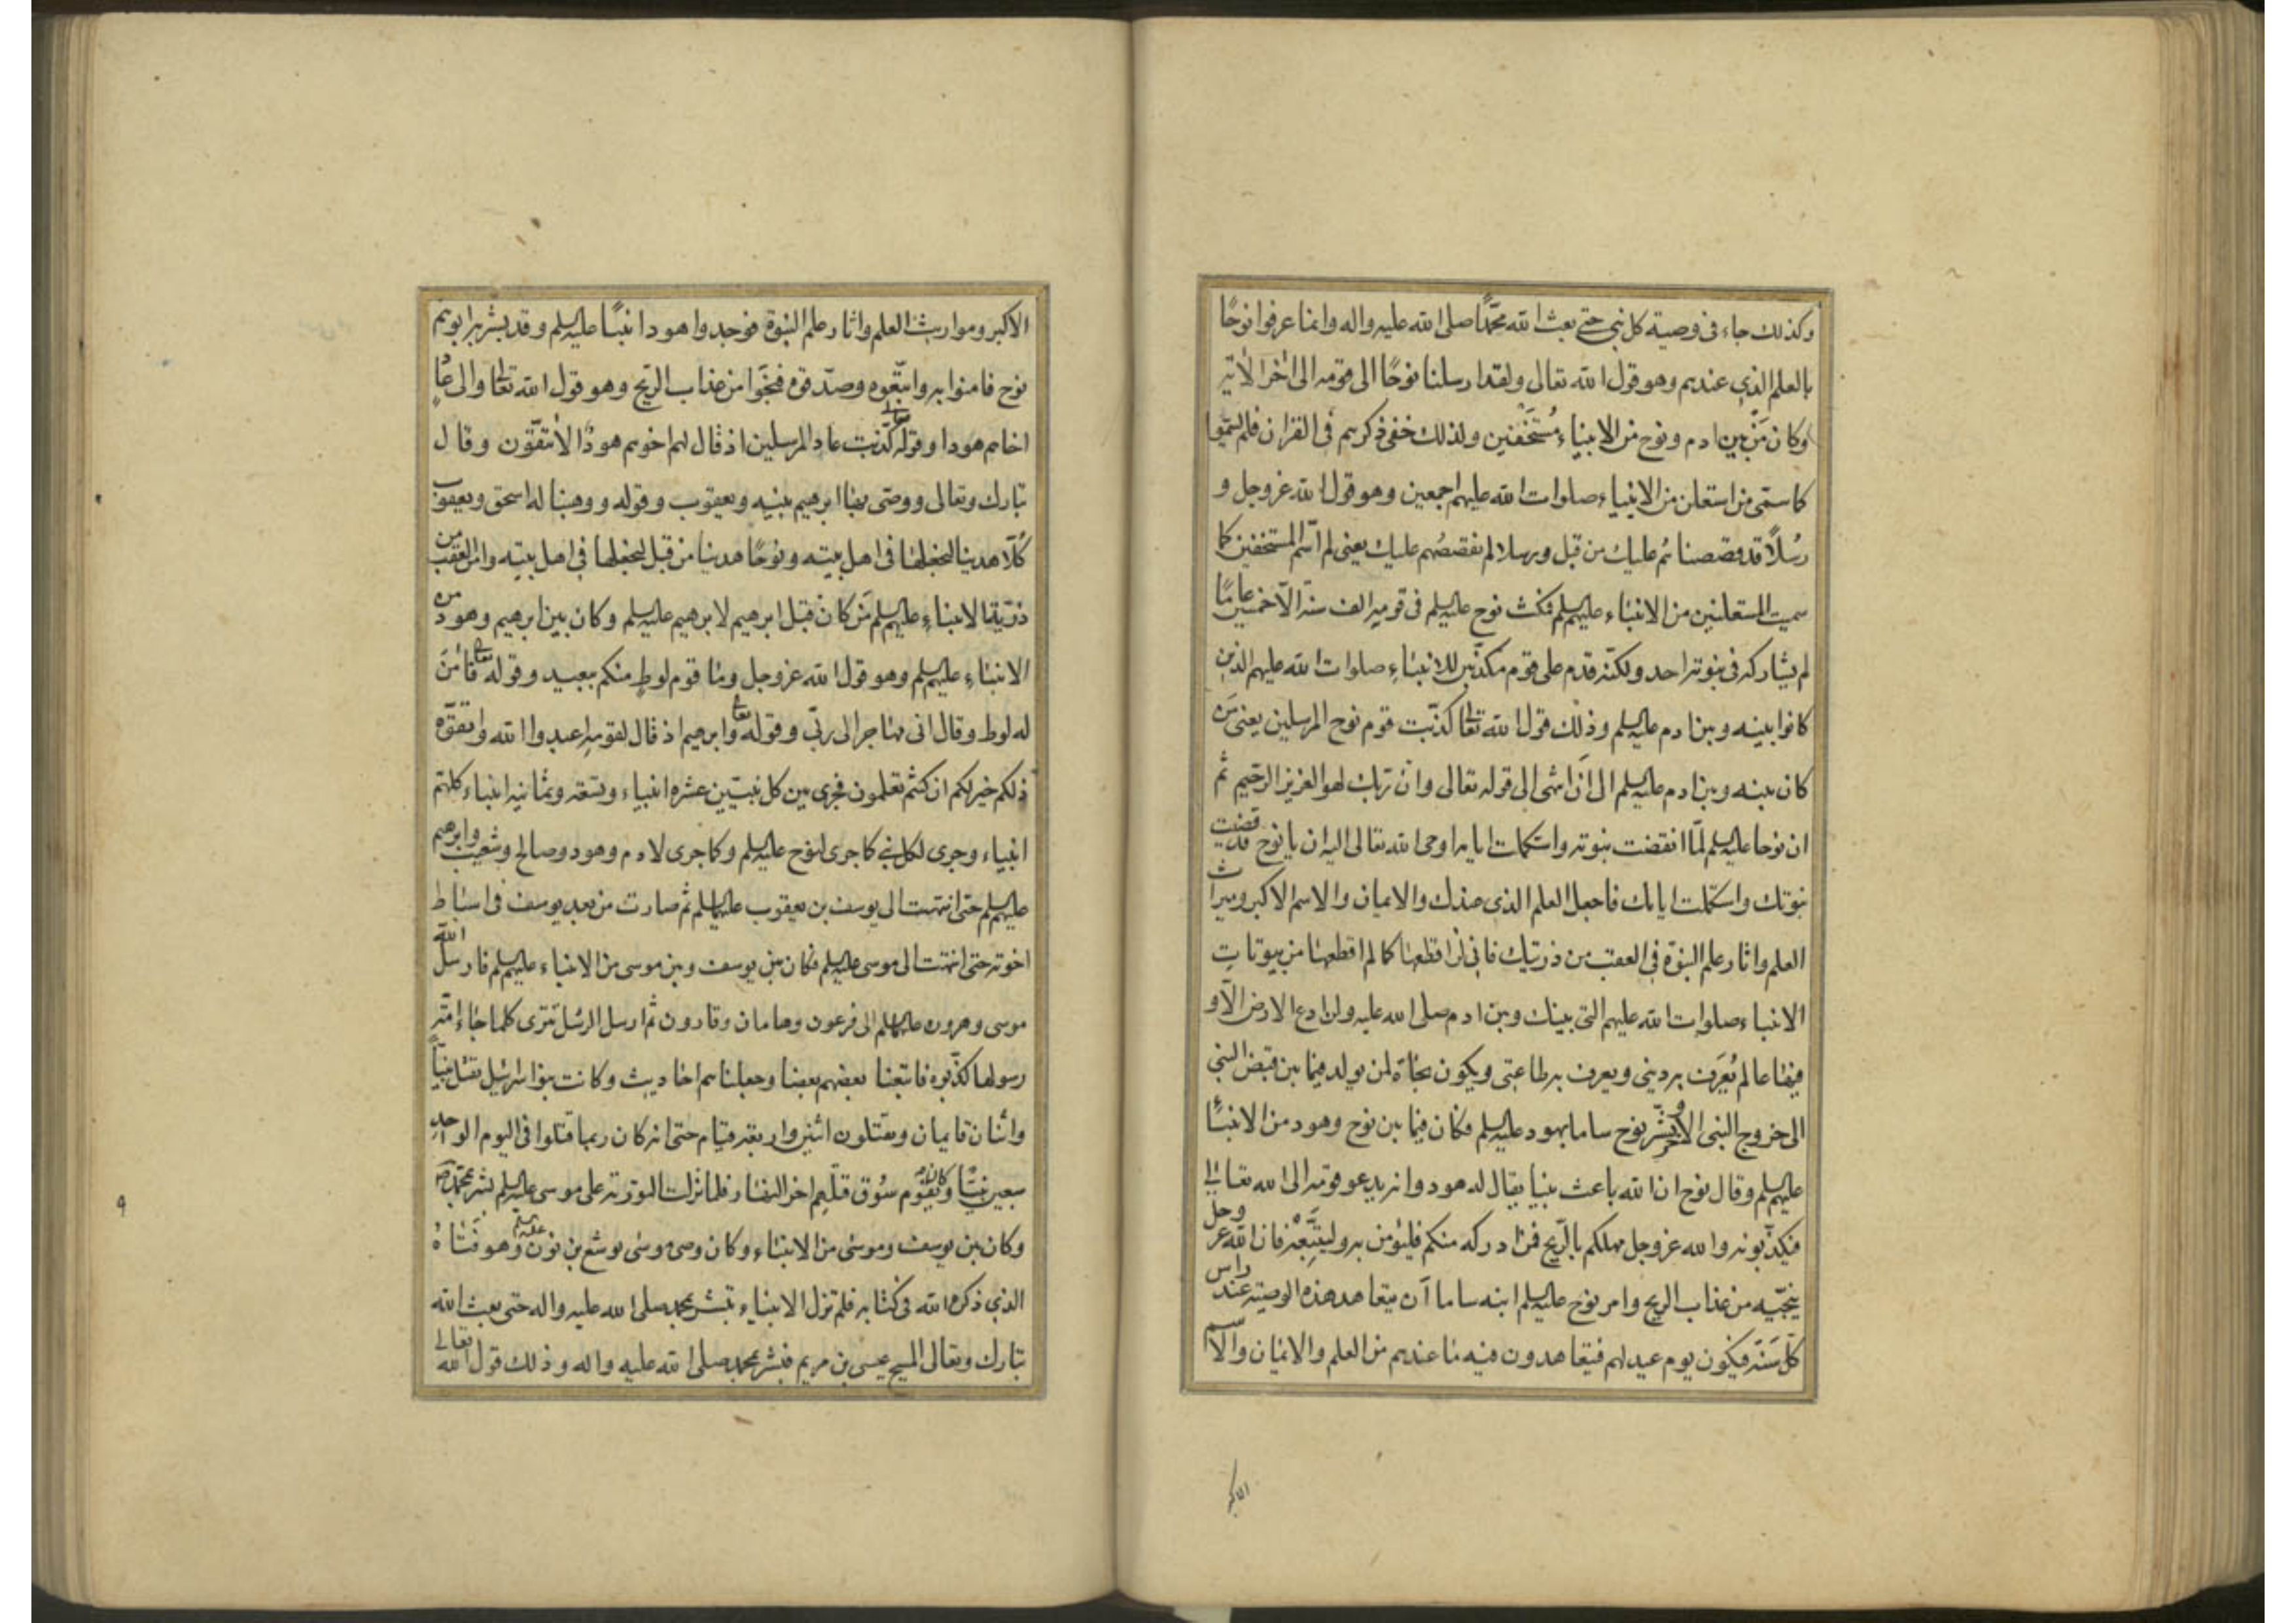 وكذلك جاء فى وصية كل نبى حتى بعث الله محمّدًا صلى الله عليه واله وانما عرفوا نوحًا
بالعلم الذى عندهم وهو قول الله تعالى ولقد ارسلنا نوحًا الى قومه الى اخر الاية
وكان مَن بين ادم ونوح من الانبياء مُستَخفين ولذلك خفى ذكرهم فى القران فلم يسمّوا
كما سمّى من استعلن من الانبياء صلوات الله عليهم اجمعين وهو قول الله عز وجل و
رُسُلاً قد قصصناهم عليك من قبل ورسلا لم نقصصهم عليك يعنى لم اسمّ المستخفين كما
سميت المستعلنين من الانبياء عليهم السلم فمكث نوح عليه السلم فى قومه الف سنة الّا خمسين عامًا
لم يشاركه فى نبوته احد ولكنّه قدم على قوم مكذّبين للانبياء صلوات الله عليهم الذين
كانوا بينه وبين ادم عليه السلم وذلك قول الله تعالى كذّبت قوم نوح المرسلين يعنى مَن
كان بينه وبين ادم عليه السلم الى اَن انتهى الى قوله تعالى وانّ ربّك لهو العزيز الرّحيم ثم
ان نوحا عليه السلم لمّا انقضت نبوته واستكملت ايامه اوحى الله تعالى اليه ان يا نوح قد قضيت
نبوتك واستكملت ايامك فاجعل العلم الذى عندك والايمان والاسم الاكبر وميراث
العلم واثار علم النبوّة فى العقب من ذريتك فانى لن اقطعها كما لم اقطعها من بيوتات
الانبياء صلوات الله عليهم التى بينك وبين ادم صلى الله عليه ولن ادع الارض الّا و
فيها عالم يُعرَف به دينى ويعرف به طاعتى ويكون نجاة لمن يولد فيما بين قبض النبى
الى خروج النبى الاخر وبشّر نوح ساما بهود عليه السلم فكان فيما بين نوح وهود من الانبياء
عليهم السلم وقال نوح ان الله باعث نبيا يقال له هود وانه يدعو قومه الى الله تعالى
فيكذّبونه والله عز وجل مهلكهم بالرّيح فمن ادركه منكم فليؤمن به وليتّبعه فان الله عز وجل
ينجّيه من عذاب الريح وامر نوح عليه السلم ابنه ساما اَن يتعاهد هذه الوصية عند راس
كلّ سَنَة فيكون يوم عيد لهم فيتعاهدون فيه ما عندهم من العلم والايمان والاسم
الاكبر
الاكبر ومواريث العلم واثار علم النبوة فوجدوا هودا نبيًا عليه السلم وقد بشّر به ابوهم
نوح فامنوا به واتّبعوه وصدّقوه فنجَوا من عذاب الريح وهو قول الله تعالى والى عادٍ
اخاهم هودا وقوله تعالى كذّبت عاد المرسلين اذ قال لهم اخوهم هودٌ الا تتّقون وقال
تبارك وتعالى ووصّى بها ابرهيم بنيه ويعقوب وقوله ووهبنا له اسحق ويعقوب
كُلّا هدينا لنجعلها فى اهل بيته ونوحًا هدينا من قبل لنجعلها فى اهل بيته وامر العقب من
ذرّية الانبياء عليهم السلم مَن كان قبل ابرهيم لابرهيم عليه السلم وكان بين ابرهيم وهود من
الانبياء عليهم السلم وهو قول الله عز وجل وما قوم لوط منكم ببعيد وقوله تعالى فامَنَ
له لوط وقال انى مهاجر الى ربّى وقوله تعالى وابرهيم اذ قال لقومه اعبدوا الله واتقوّه
ذلكم خير لكم ان كنتم تعلمون فجرى بين كل نبيّين عشرة انبياء وتسعة وثمانية انبياء كلهم
انبياء وجرى لكل نبى كما جرى لنوح عليه السلم وكما جرى لادم وهود وصالح وشعيب وابرهيم
عليهم السلم حتى انتهت الى يوسف بن يعقوب عليهما السلم ثم صارت من بعد يوسف فى اسباط
اخوته حتى انتهت الى موسى عليه السلم فكان بين يوسف وبين موسى من الانبياء عليهم السلم فارسل الله
موسى وهرون عليهما السلم الى فرعون وهامان وقارون ثم ارسل الرسُل تترى كلما جاء امّة
رسولها كذّبوه فاتبعنا بعضهم بعضا وجعلناهم احاديث وكانت بنو اسرائيل تقتل نبيًّا
واثنان قايمان ويقتلون اثنين واربعة قيام حتى انه كان ربما قتلوا فى اليوم الواحد
سبعين نبيًّا ويقوم سُوق قتلهم اخر النهار فلما نزلت التورية على موسى عليه السلم بشّر بمحمّد ص
وكان بين يوسف وموسى من الانبياء وكان وصى موسى يوشع بن نون عليه السلم وهو فتاهُ
الذى ذكره الله فى كتابه فلم تزل الانبياء تبشّر بمحمد صلى الله عليه واله حتى بعث الله
تبارك وتعالى المسيح عيسى بن مريم فبشّر بمحمد صلى الله عليه واله وذلك قول الله تعالى
٩